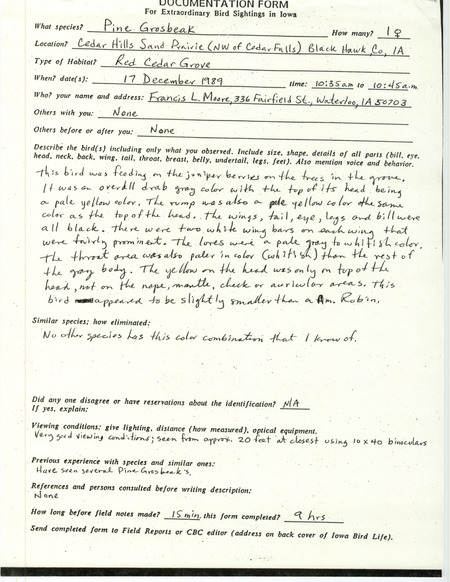 DOCUMENTATION FORM
For Extraordinary Bird Sightings in Iowa
What species? Pine Grosbeak How many? 1 ♀
Location? Cedar Hills Sand Prairie (NW of Cedar Falls) Black Hawk, Co, IA
Type of Habitat? Red Cedar Grove
When? date(s): 17 December 1989 time: 10:35 am to 10:45 a.m
Who? your name and address: Francis L. Moore, 336 Fairfield St., Waterloo, IA 50703
Others with you: None
Others before or after you: None
Describe the bird(s) including only what you observed. Include size, shape, details of all parts (bill, eye,
head, neck, back, wing, tail, throat, breast, belly, undertail, legs, feet). Also mention voice and behavior.
This bird was feeding on the juniper berries on the trees in the grove.
It was an overall drab gray color with the top of its head being
a pale yellow color. The rump was also a pale yellow color the same
color as the top of the head. The wings, tail, eye, legs and bill were
all black. There were two white wing bars on each wing that
were fairly prominent. The lores were a pale gray to whitish color.
The throat area was also paler in color (whitish) than the rest of
the gray body. The yellow on the head was only on top of the
head, not on the nape, mantle, cheek or auricular areas. This
bird appeared to be slightly smaller than a Am. Robin.
Similar species; how eliminated:
No other species has this color combination that I know of.
Did any one disagree or have reservations about the identification? N/A
If yes, explain:
Viewing conditions: give lighting, distance (how measured), optical equipment.
Very good viewing conditions; seen from approx. 20 feet at closest using 10 x 40 binoculars
Previous experience with species and similar ones:
Have seen several Pine Grosbeak's.
References and persons consulted before writing description:
None
How long before field notes made? 15 min. this form completed? 9 hrs
Send completed form to Field Reports or CBC editor (address on back cover of Iowa Bird Life).